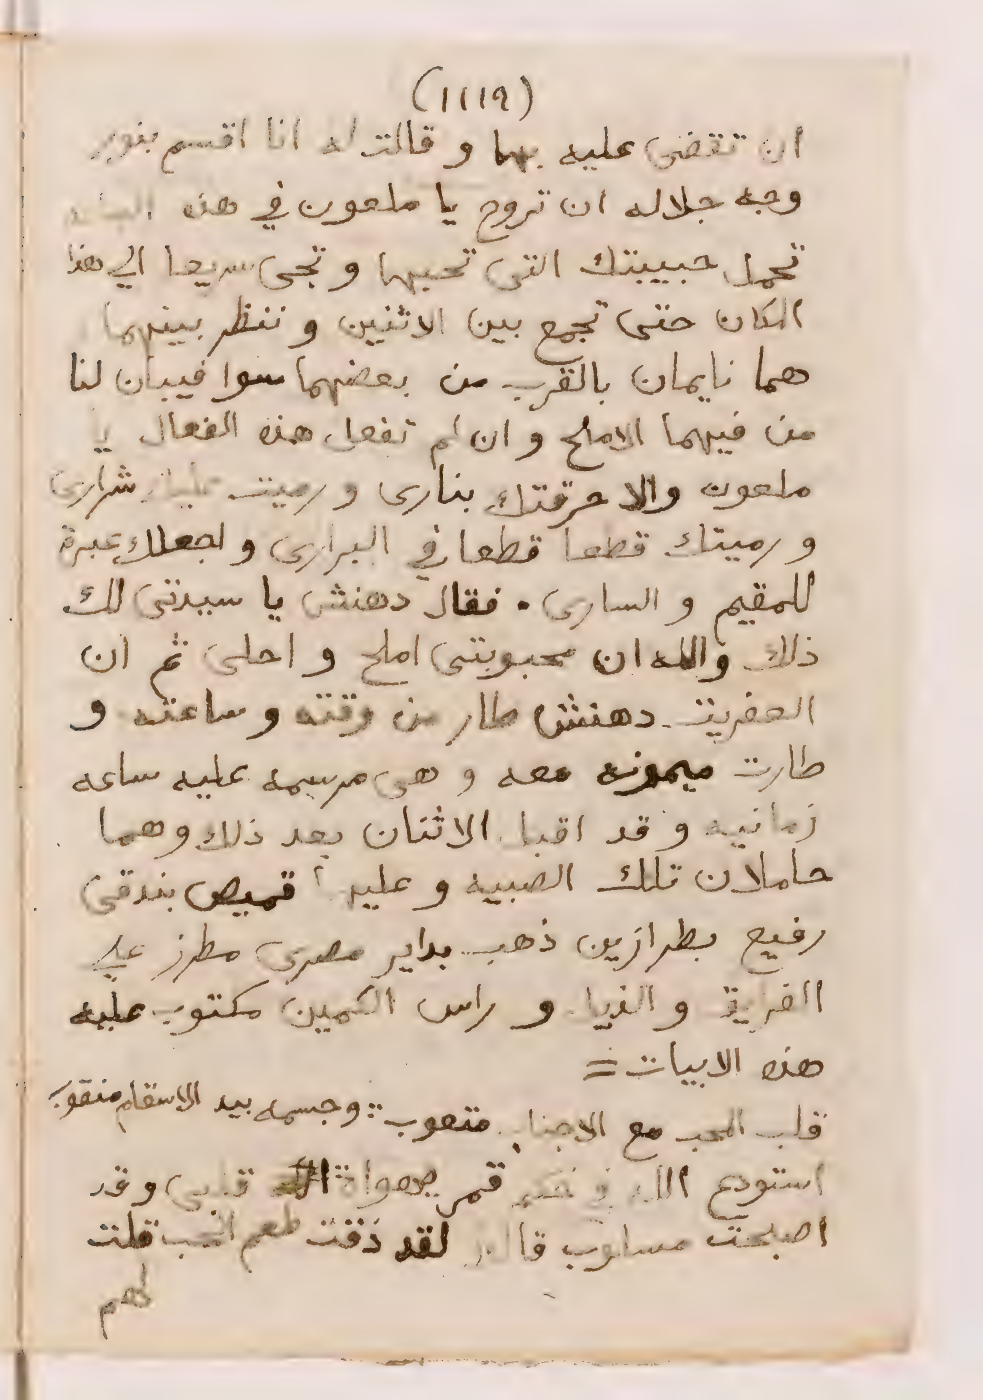 (١١١٩)
ان تقضى عليه بها و قالت له انا اقسم بنور
وجه جلاله ان تروح يا ملعون في هذه
تحمل حبيبتك التى تحبها و تجى سريعا الي هذا
المكان حتى تجمع بين الاثنين و ننظر بينهما
هما نايمان بالقرب من بعضهما سوا فيبان لنا
من فيهما الاملح و ان لم تفعل هذه الفعال يا
ملعون والا حرقتك بنارى و رميت عليك شرارى
و رميتك قطعا قطعا في البرارى و لجعلك عبرة
للمقيم و السارى . فقال دهنش يا سيدتى لك
ذلك والله ان محبوبتى املح و احلى ثم ان
العفريت دهنش طار من وقته و ساعته و
طارت ميمونه معه و هى مرسمه عليه ساعه
زمانيه و قد اقبل الاثنان بعد ذلك وهما
حاملان تلك الصبيه و عليها قميص بندقى
رفيع بطرازين ذهب بداير مصرى مطرز على
و الذيل و راس الكمين مكتوب عليه
هذه الابيات =
قلب المحب مع الاحباب متعوب :: وجسمه بيد الاسقام منهوب
استودع الله في قمر قلبى وقد
اصبحت مسلوب قالو لقد ذقت طعم الحب قلت
لهم